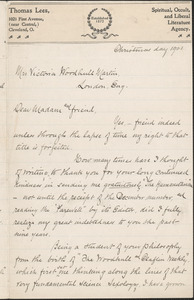 Thomas Lees,
1023 First Avenue,
(near Central,)
Cleveland, O.
Established
Spiritual, Occult,
and Liberal
Literature
Agency.
Christmas day 1901
Mrs Victoria Woodhull Martin
London, Eng.
Dear Madame & friend,
Yes — friend indeed
unless through the lapse of time my right to that
title is forfeited.
How many times have I thought
of writing to thank you for your long continued
kindness in sending me gratuitously The Humanitarian
— not until the receipt of the December number, &
reading the "Farewell" by its Editor, did I fully
realize my great indebtedness to you the past
nine years.
Being a student of your philosophy
from the birth of "The Woodhull & Claflin Weekly",
which first set me thinking along the lines of that
very fundamental science Sociology, I have